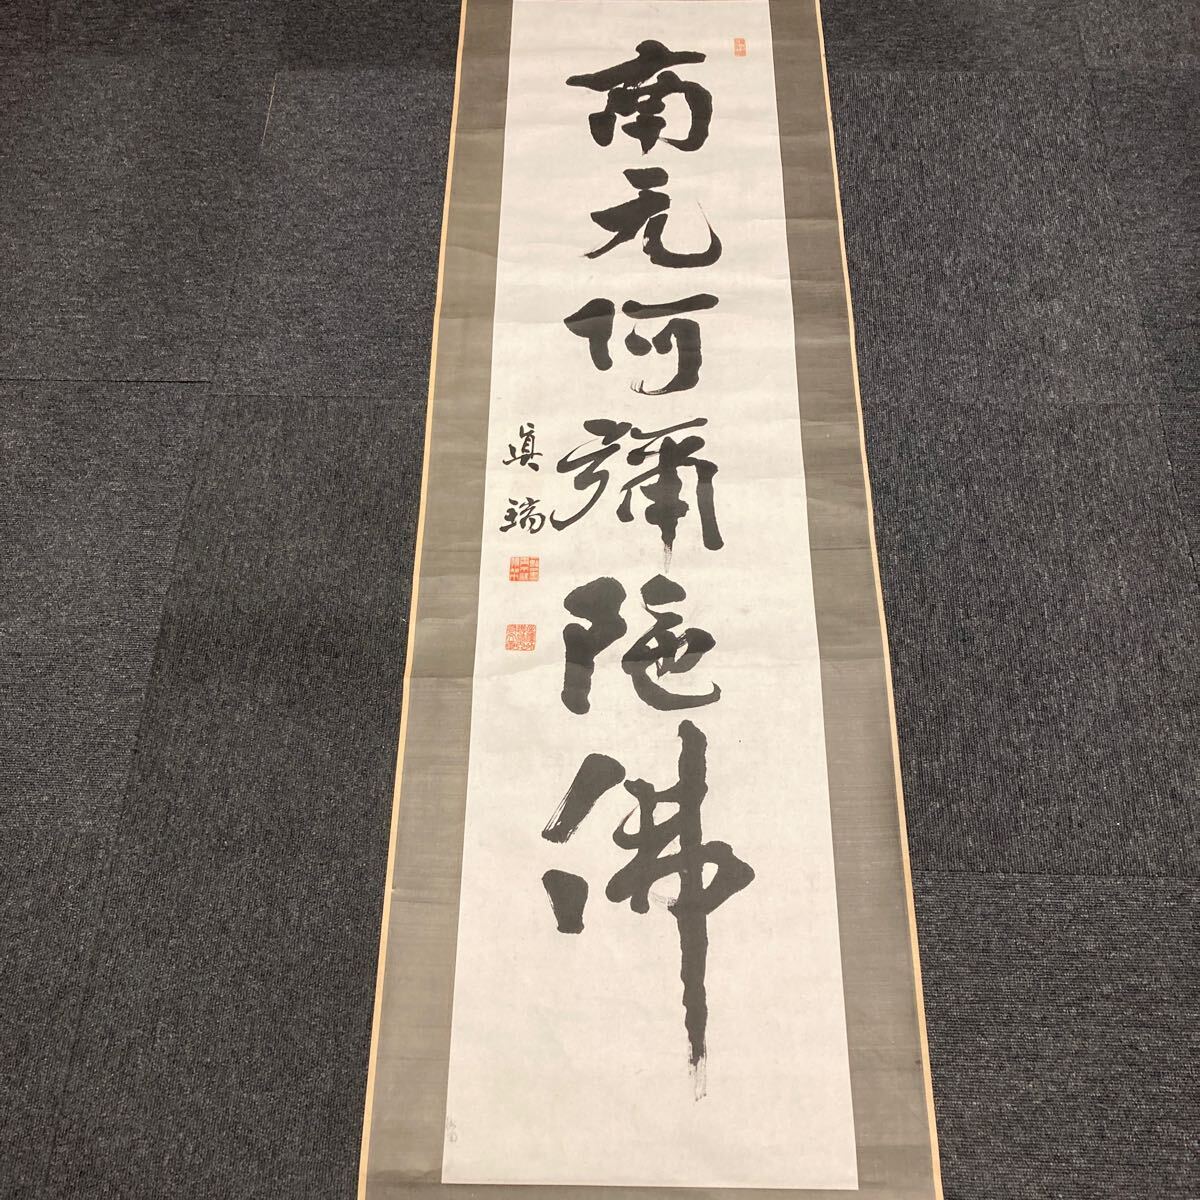 南无阿彌陀佛
眞瑞